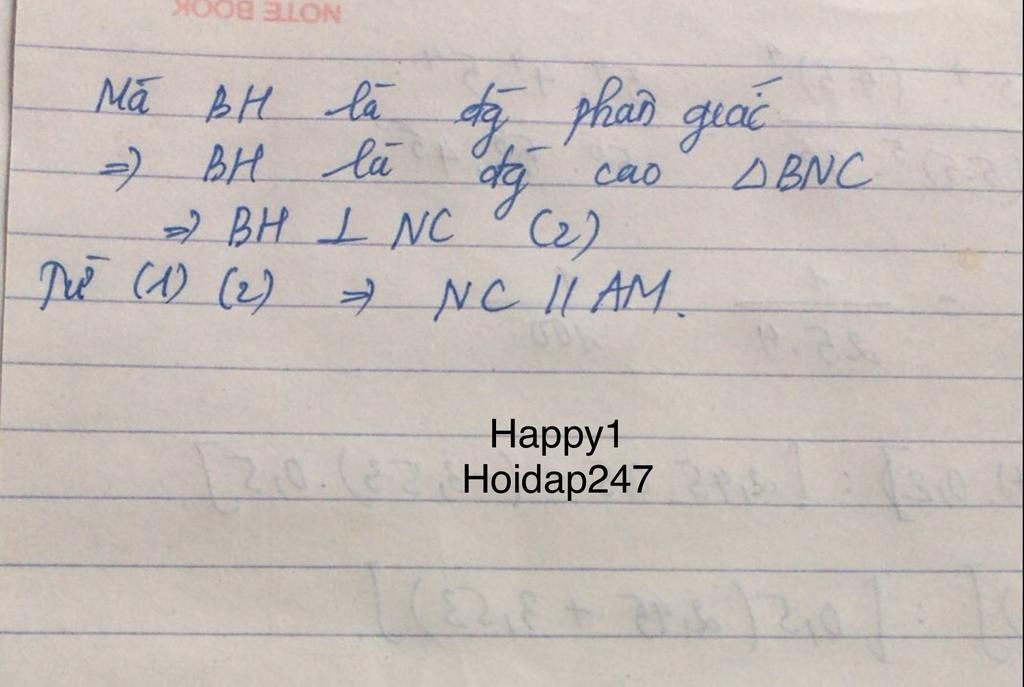 NOTE BOOK
Mà BH là đg phân giác
=> BH là đg cao △BNC
=> BH ⊥ NC (2)
Từ (1) (2) => NC // AM.
Happy1
Hoidap247